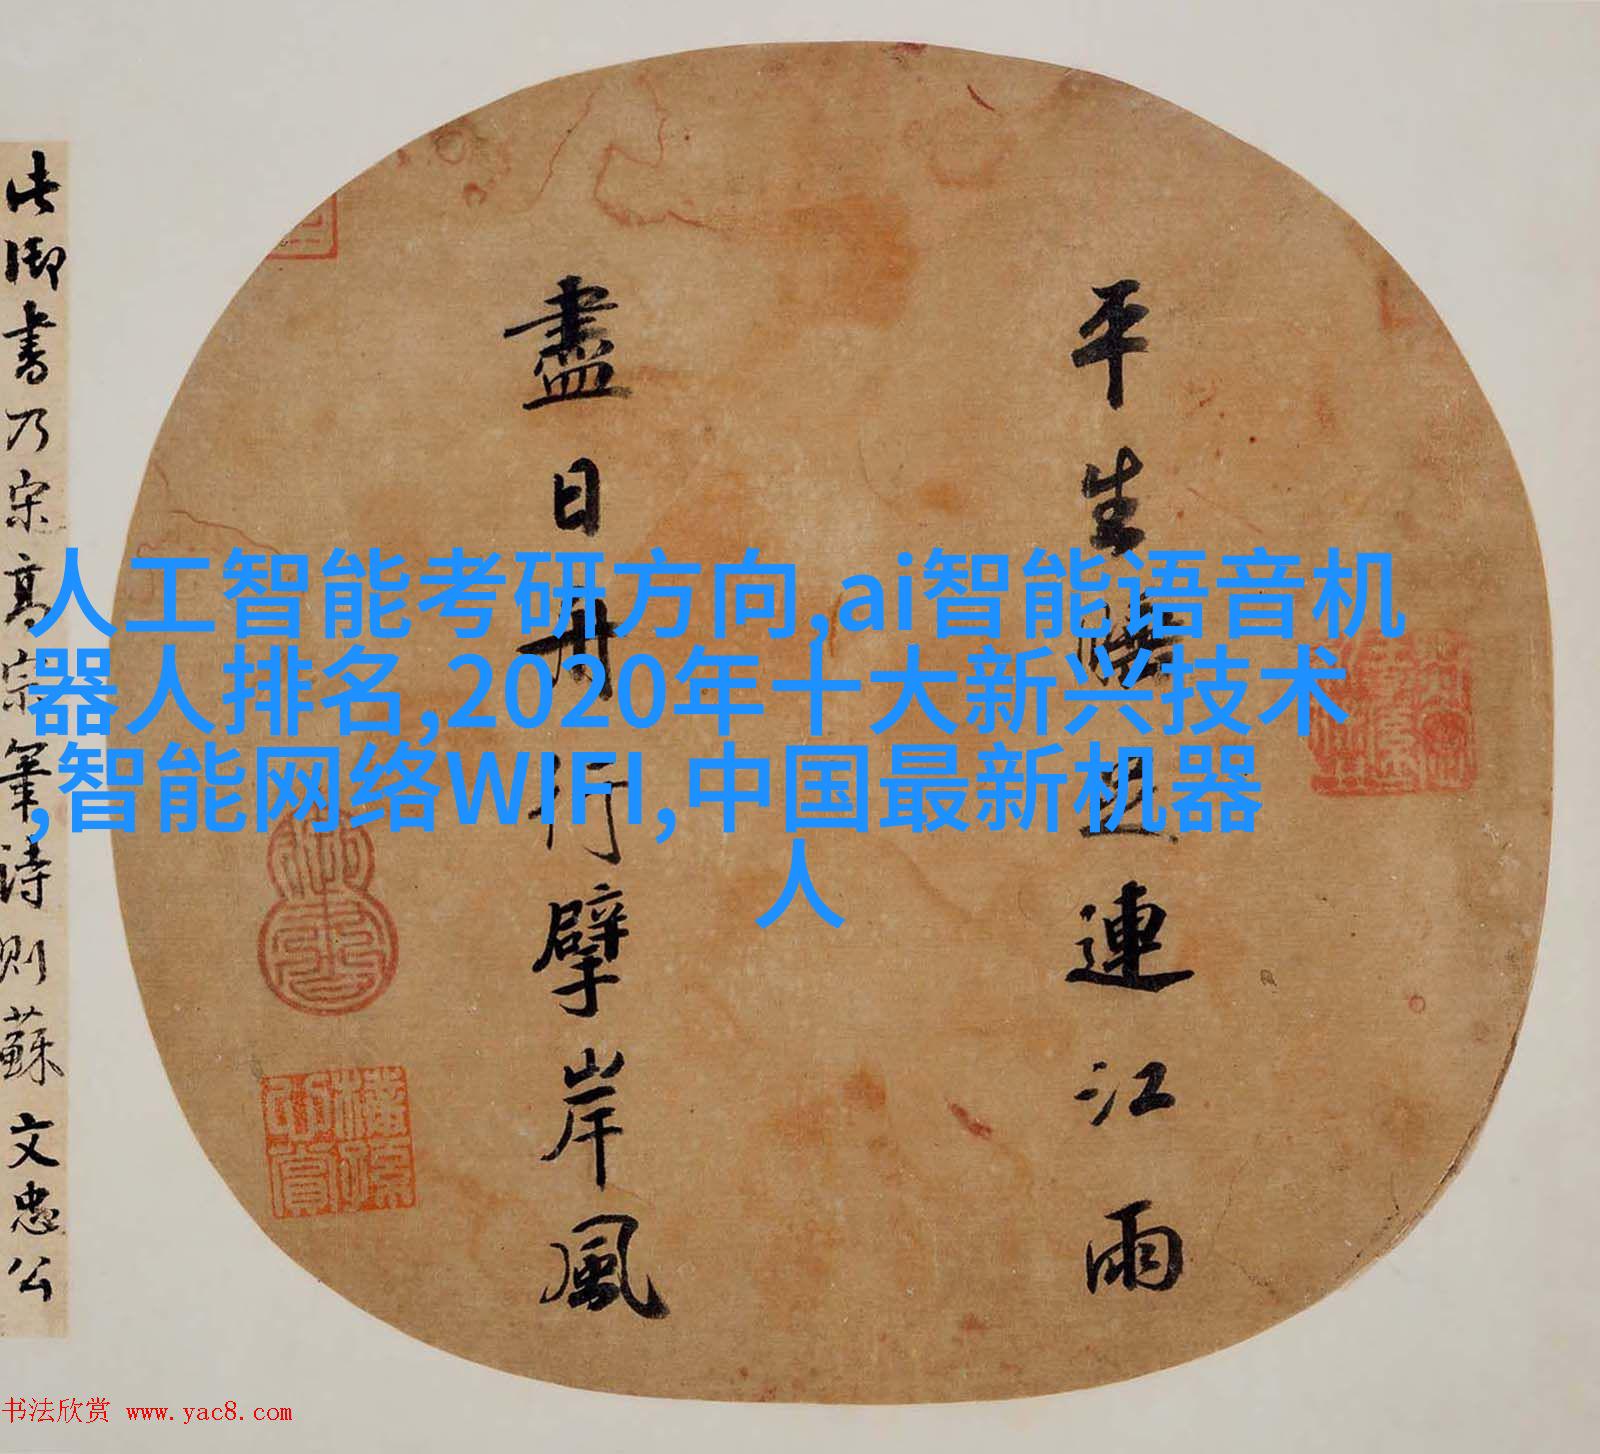 平生連江雨
盡日舟行擘岸風
此御書乃宋高宗筆詩則蘇文忠公
人工智能考研方向,ai智能语音机
器人排名,2020年十大新兴技术
,智能网络WIFI,中国最新机器
人
书法欣赏 www.yac8.com